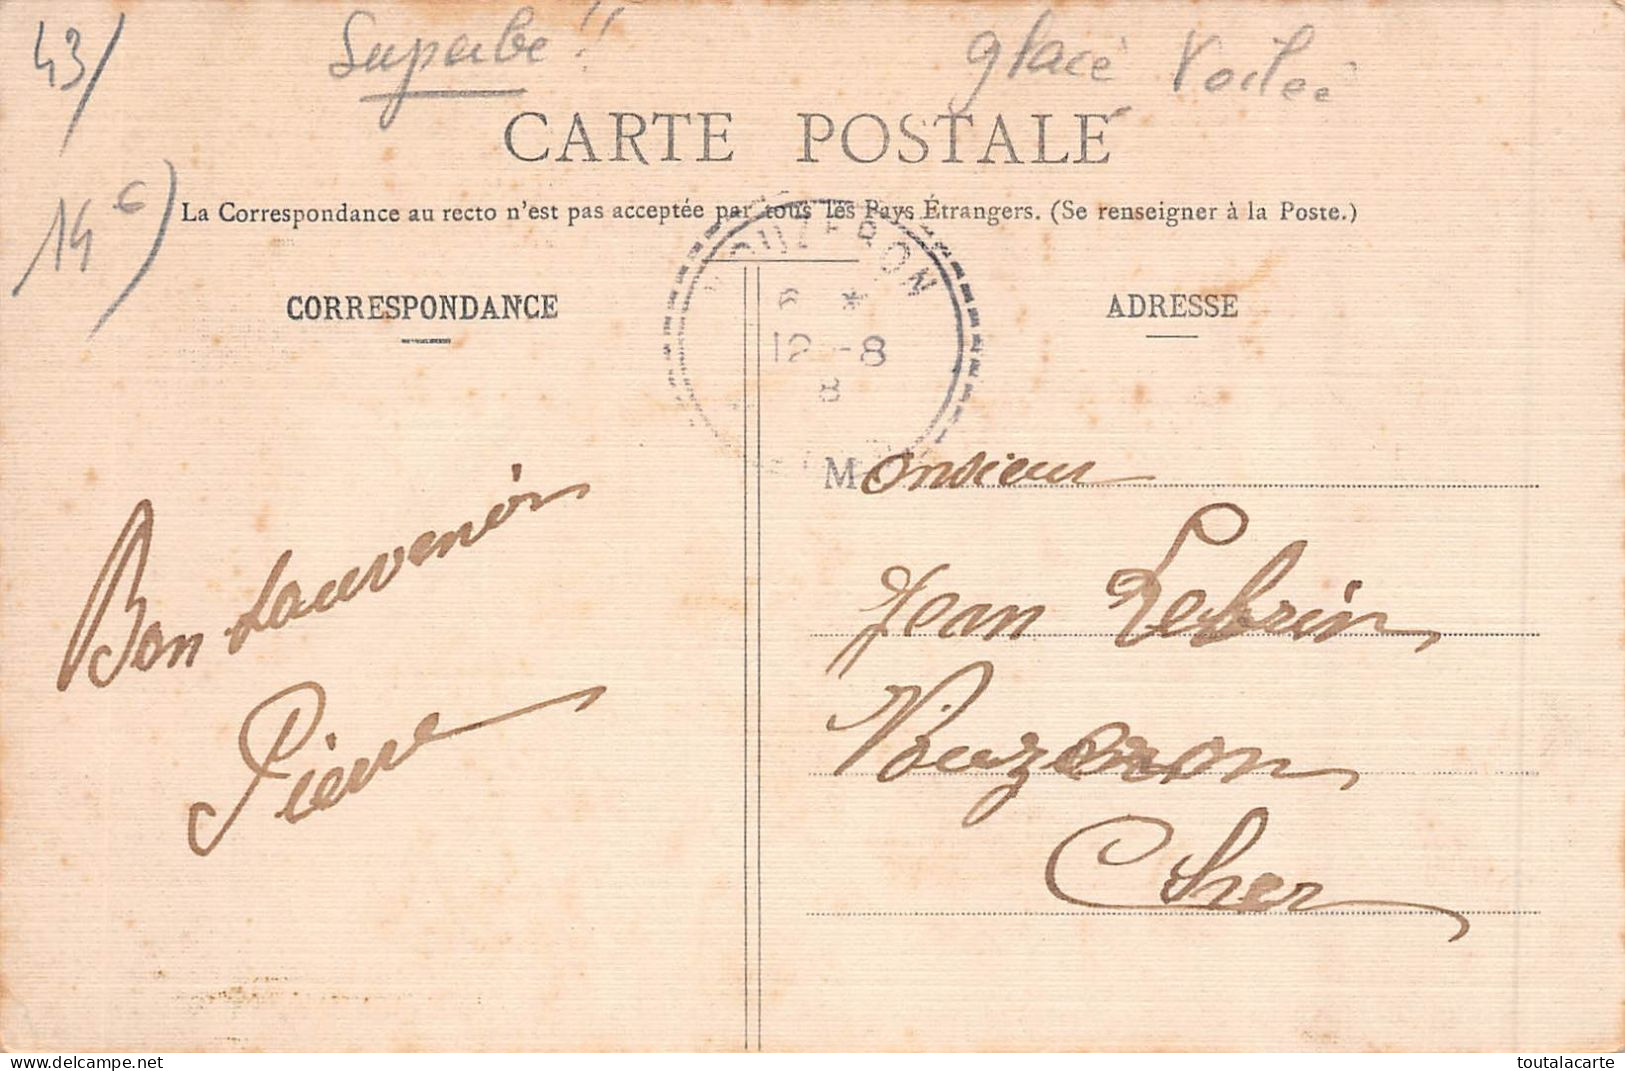 43/
Superbe !!
glacé Voilée
CARTE POSTALE
14€)
La Correspondance au recto n'est pas acceptée par tous les Pays Étrangers. (Se renseigner à la Poste.)
VOUZERON
6 *
12 -8
8
CORRESPONDANCE
ADRESSE
Monsieur
Jean Lebrin
Vouzeron
Cher
Bon Sauvenir
Pierre
Delcampe.net
toutalacarte